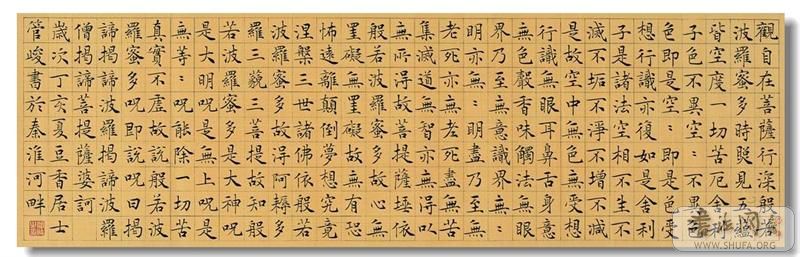 觀自在菩薩行深般若
波羅蜜多時照見五蘊
皆空度一切苦厄舍利
子色不異空〻不異色
色即是空〻即是色受
想行識亦復如是舍利
子是諸法空相不生不
滅不垢不淨不增不減
是故空中無色無受想
行識無眼耳鼻舌身意
無色聲香味觸法無眼
界乃至無意識界無〻
明亦無〻明盡乃至無
老死亦無老死盡無苦
集滅道無智亦無得以
無所得故菩提薩埵依
般若波羅蜜多故心無
罣礙無罣礙故無有恐
怖遠離顛倒夢想究竟
涅槃三世諸佛依般若
波羅蜜多故得阿耨多
羅三藐三菩提故知般
若波羅蜜多是大神呪
是大明呪是無上呪是
無等〻呪能除一切苦
真實不虛故說般若波
羅蜜多呪即說呪曰揭
諦揭諦波羅揭諦波羅
僧揭諦菩提薩婆訶
歲次丁亥夏豆香居士
管峻書於秦淮河畔
书法网
WWW.SHUFA.ORG